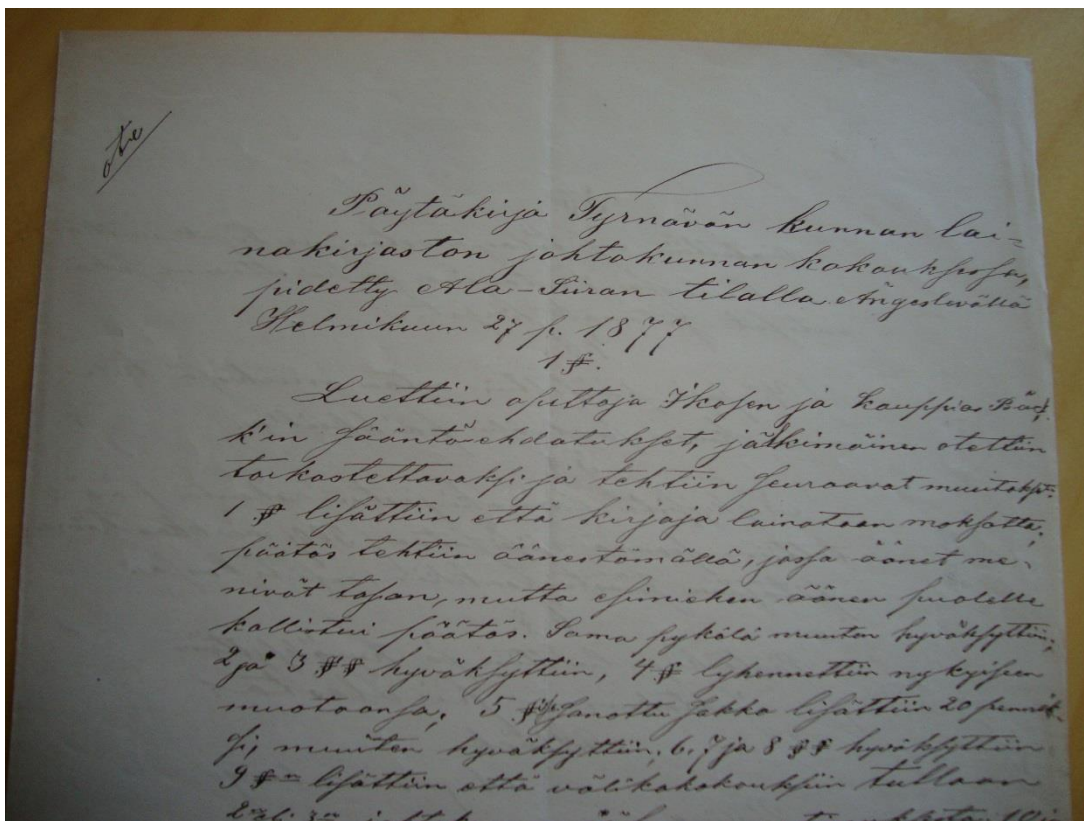 ote
Pöytäkirja Tyrnävän kunnan lai-
nakirjaston johtokunnan kokouksessa,
pidetty Ala-Siiran tilalla Ängeslevällä
Helmikuun 27 p. 1877
1 §.
Luettiin opettaja Ikosen ja kauppias Bäck,
k'in sääntöehdatukset, jälkimäinen otettiin
tarkasteltavaksi ja tehtiin seuraavat muutokset:
1 § lisättiin että kirjaja lainataan maksotta;
päätös tehtiin äänestämällä, jossa äänet me-
nivät tasan, mutta esimiehen äänen puolelle
kallistui päätös. Sama pykälä muuten hyväksyttiin;
2 ja 3 §§ hyväksyttiin, 4 § lyhennettiin nykyiseen
muotoonsa, 5 § sanottu sakko lisättiin 20 pennik-
si, muuten hyväksyttiin; 6, 7 ja 8 §§ hyväksyttiin
9 § lisättiin että välikokokouksiin tullaan